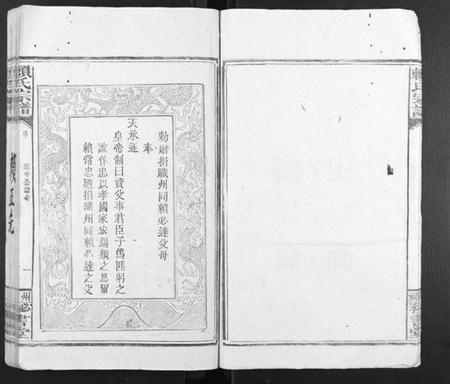 賴氏宗譜
勅贈捐職州同賴必達父母
奉
天承運
皇帝制曰資父事君臣子篤匪躬之
誼作忠以孝國家宏錫類之恩爾
賴常忠廼捐職州同賴必達之父
一
賴氏宗譜